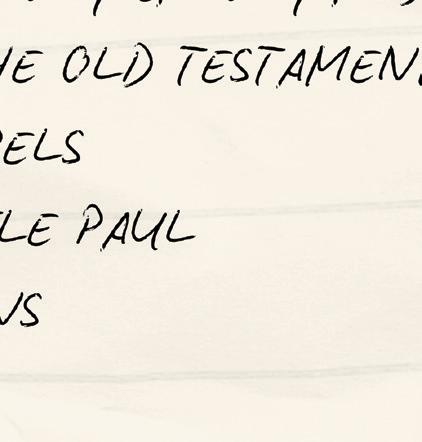 HE OLD TESTAMEN
PELS
LE PAUL
NS